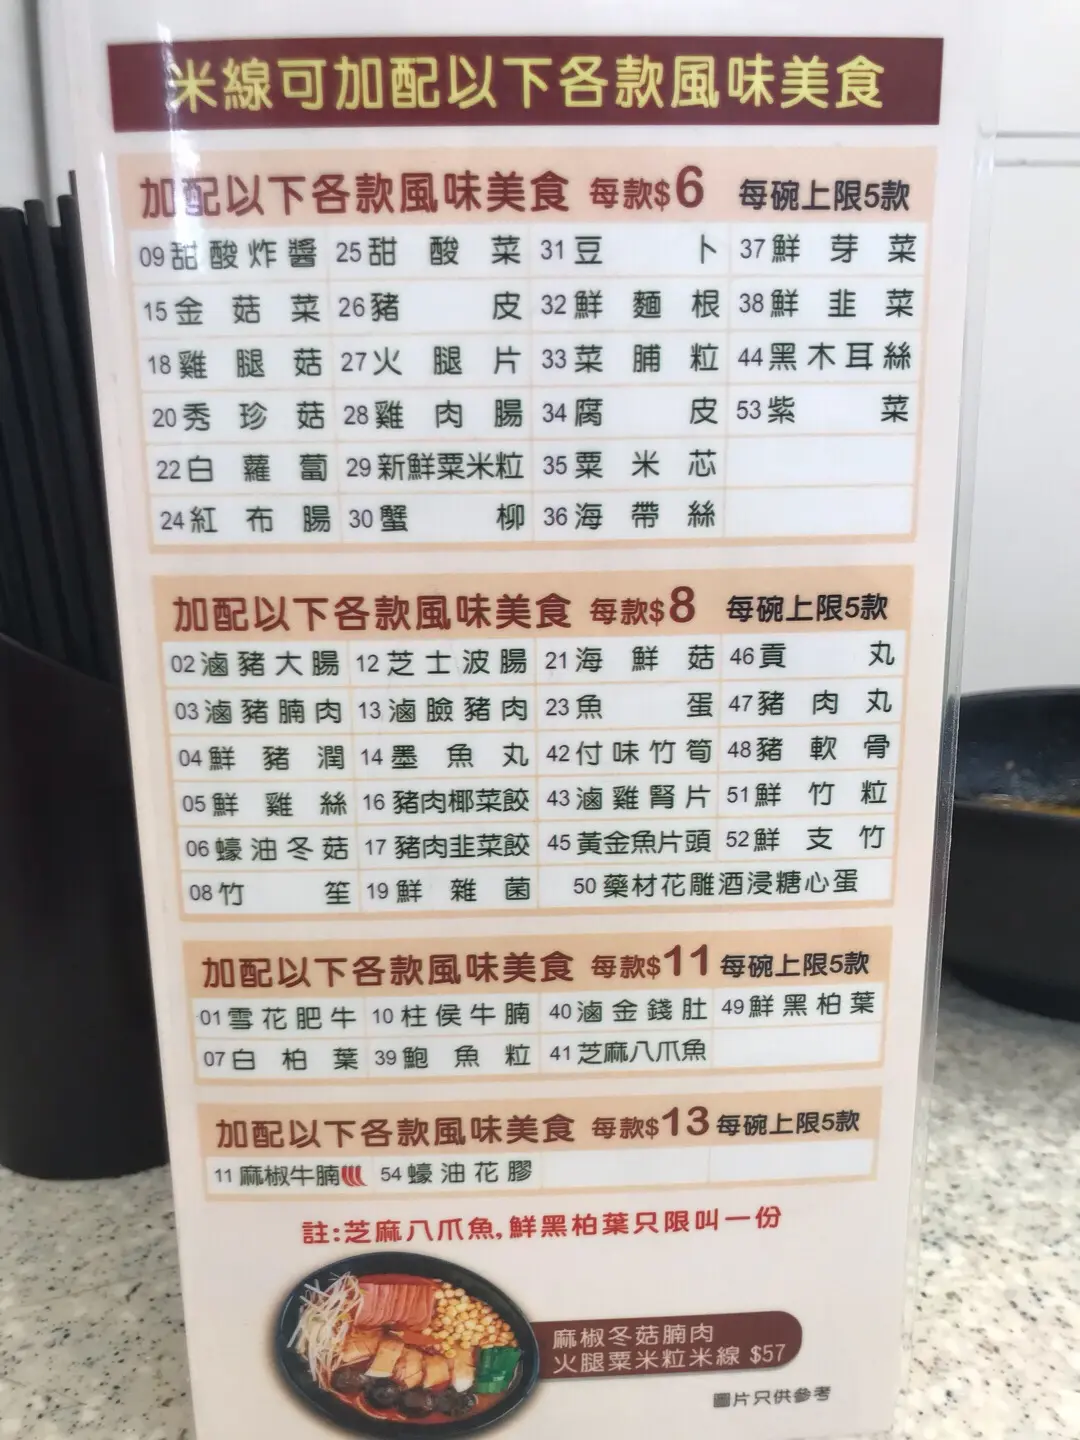 米線可加配以下各款風味美食
加配以下各款風味美食 每款$6 每碗上限5款
09甜酸炸醬 25甜酸菜 31豆卜 37鮮芽菜
15金菇菜 26豬皮 32鮮麵根 38鮮韭菜
18雞腿菇 27火腿片 33菜脯粒 44黑木耳絲
20秀珍菇 28雞肉腸 34腐皮 53紫菜
22白蘿蔔 29新鮮粟米粒 35粟米芯
24紅布腸 30蟹柳 36海帶絲
加配以下各款風味美食 每款$8 每碗上限5款
02滷豬大腸 12芝士波腸 21海鮮菇 46貢丸
03滷豬腩肉 13滷臉豬肉 23魚蛋 47豬肉丸
04鮮豬潤 14墨魚丸 42付味竹筍 48豬軟骨
05鮮雞絲 16豬肉椰菜餃 43滷雞腎片 51鮮竹粒
06蠔油冬菇 17豬肉韭菜餃 45黃金魚片頭 52鮮支竹
08竹笙 19鮮雜菌 50藥材花雕酒浸糖心蛋
加配以下各款風味美食 每款$11 每碗上限5款
01雪花肥牛 10柱侯牛腩 40滷金錢肚 49鮮黑柏葉
07白柏葉 39鮑魚粒 41芝麻八爪魚
加配以下各款風味美食 每款$13 每碗上限5款
11麻椒牛腩 54蠔油花膠
註:芝麻八爪魚,鮮黑柏葉只限叫一份
麻椒冬菇腩肉
火腿粟米粒米線 $57
圖片只供參考